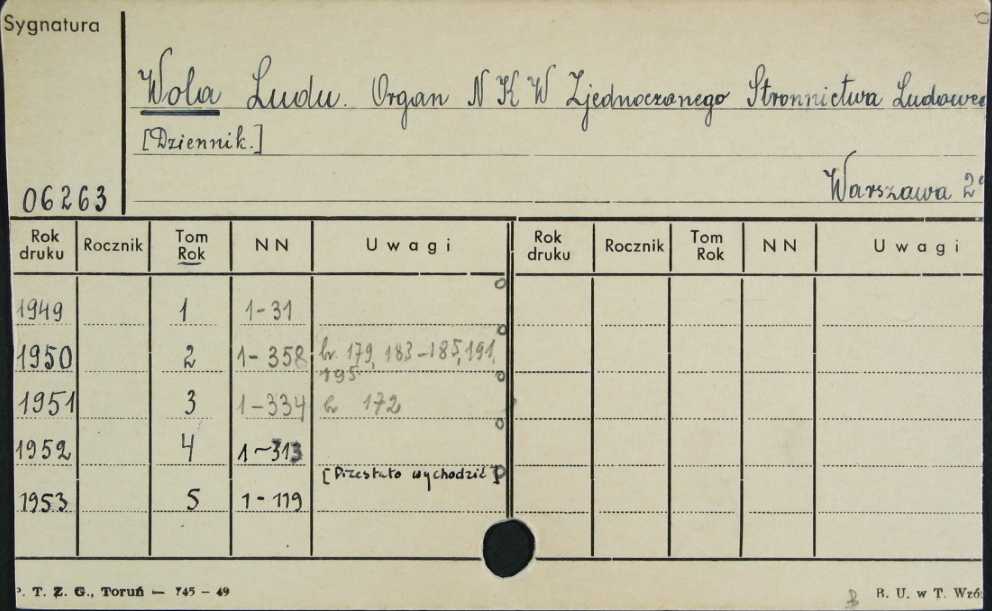 Sygnatura
Wola Ludu. Organ N K W Zjednoczonego Stronnictwa Ludowe
[Dziennik.]
06263
Warszawa 2°
Rok druku Rocznik Tom Rok N N Uwagi Rok druku Rocznik Tom Rok N N Uwagi
1949 1 1-31
1950 2 1-358 br. 179, 183-185, 191,
195
1951 3 1-334 br 172
1952 4 1-313
[Przestało wychodzić]
1953 5 1-119
P. T. Z. G., Toruń — 745 - 49
B. U. w T. Wzó